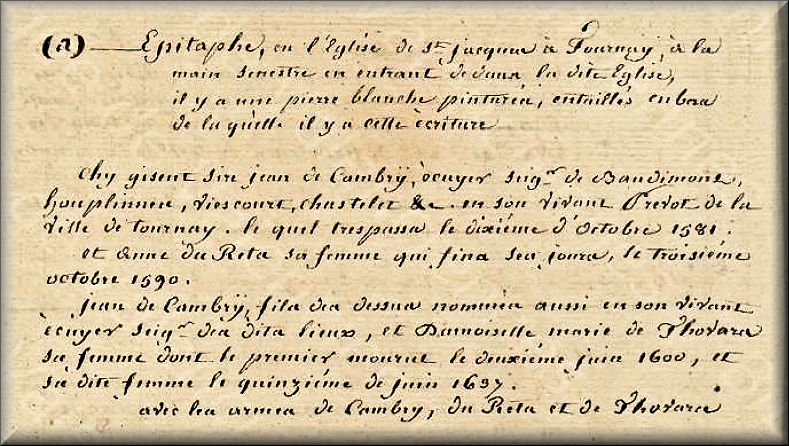 (a) — Epitaphe, en l'Eglise de St. jacques à Tournay, à la
main senestre en entrant dedans la dite Eglise,
il y a une pierre blanche pinturée, entaillés en bora
de la quelle il y a cette écriture
Chy gisent sire jean de Cambrÿ, écuyer seigr. de Baudimons,
houplinnes, viescourt, chastelet &c. en son vivant Prevot de la
ville de tournay. le quel trespassa le dixiéme d'octobre 1581.
et anne du Reta sa femme qui fina ses jours, le troisiéme
octobre 1590.
jean de Cambrÿ, fils des dessus nommés aussi en son vivant
écuyer seigr. des dits lieux, et Damoiselle marie de Thovars
sa femme dont le premier mourut le deuxiéme juin 1600, et
sa dite femme le quinziéme de juin 1637.
avec les armes de Cambry, du Reta et de Thovars